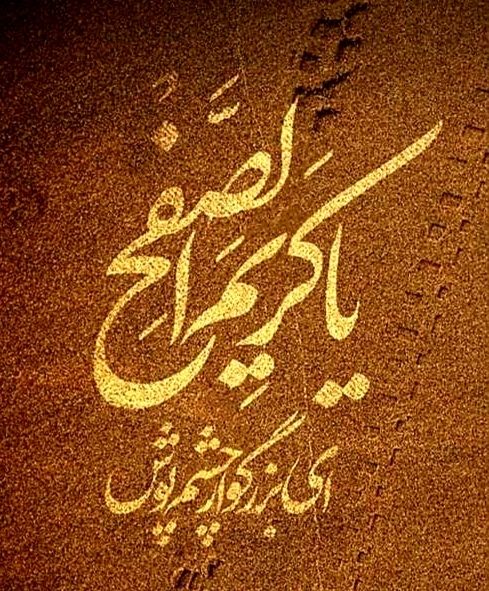 یا کَریمَ الصَّفحِ
ای بزرگوار چشم پوش